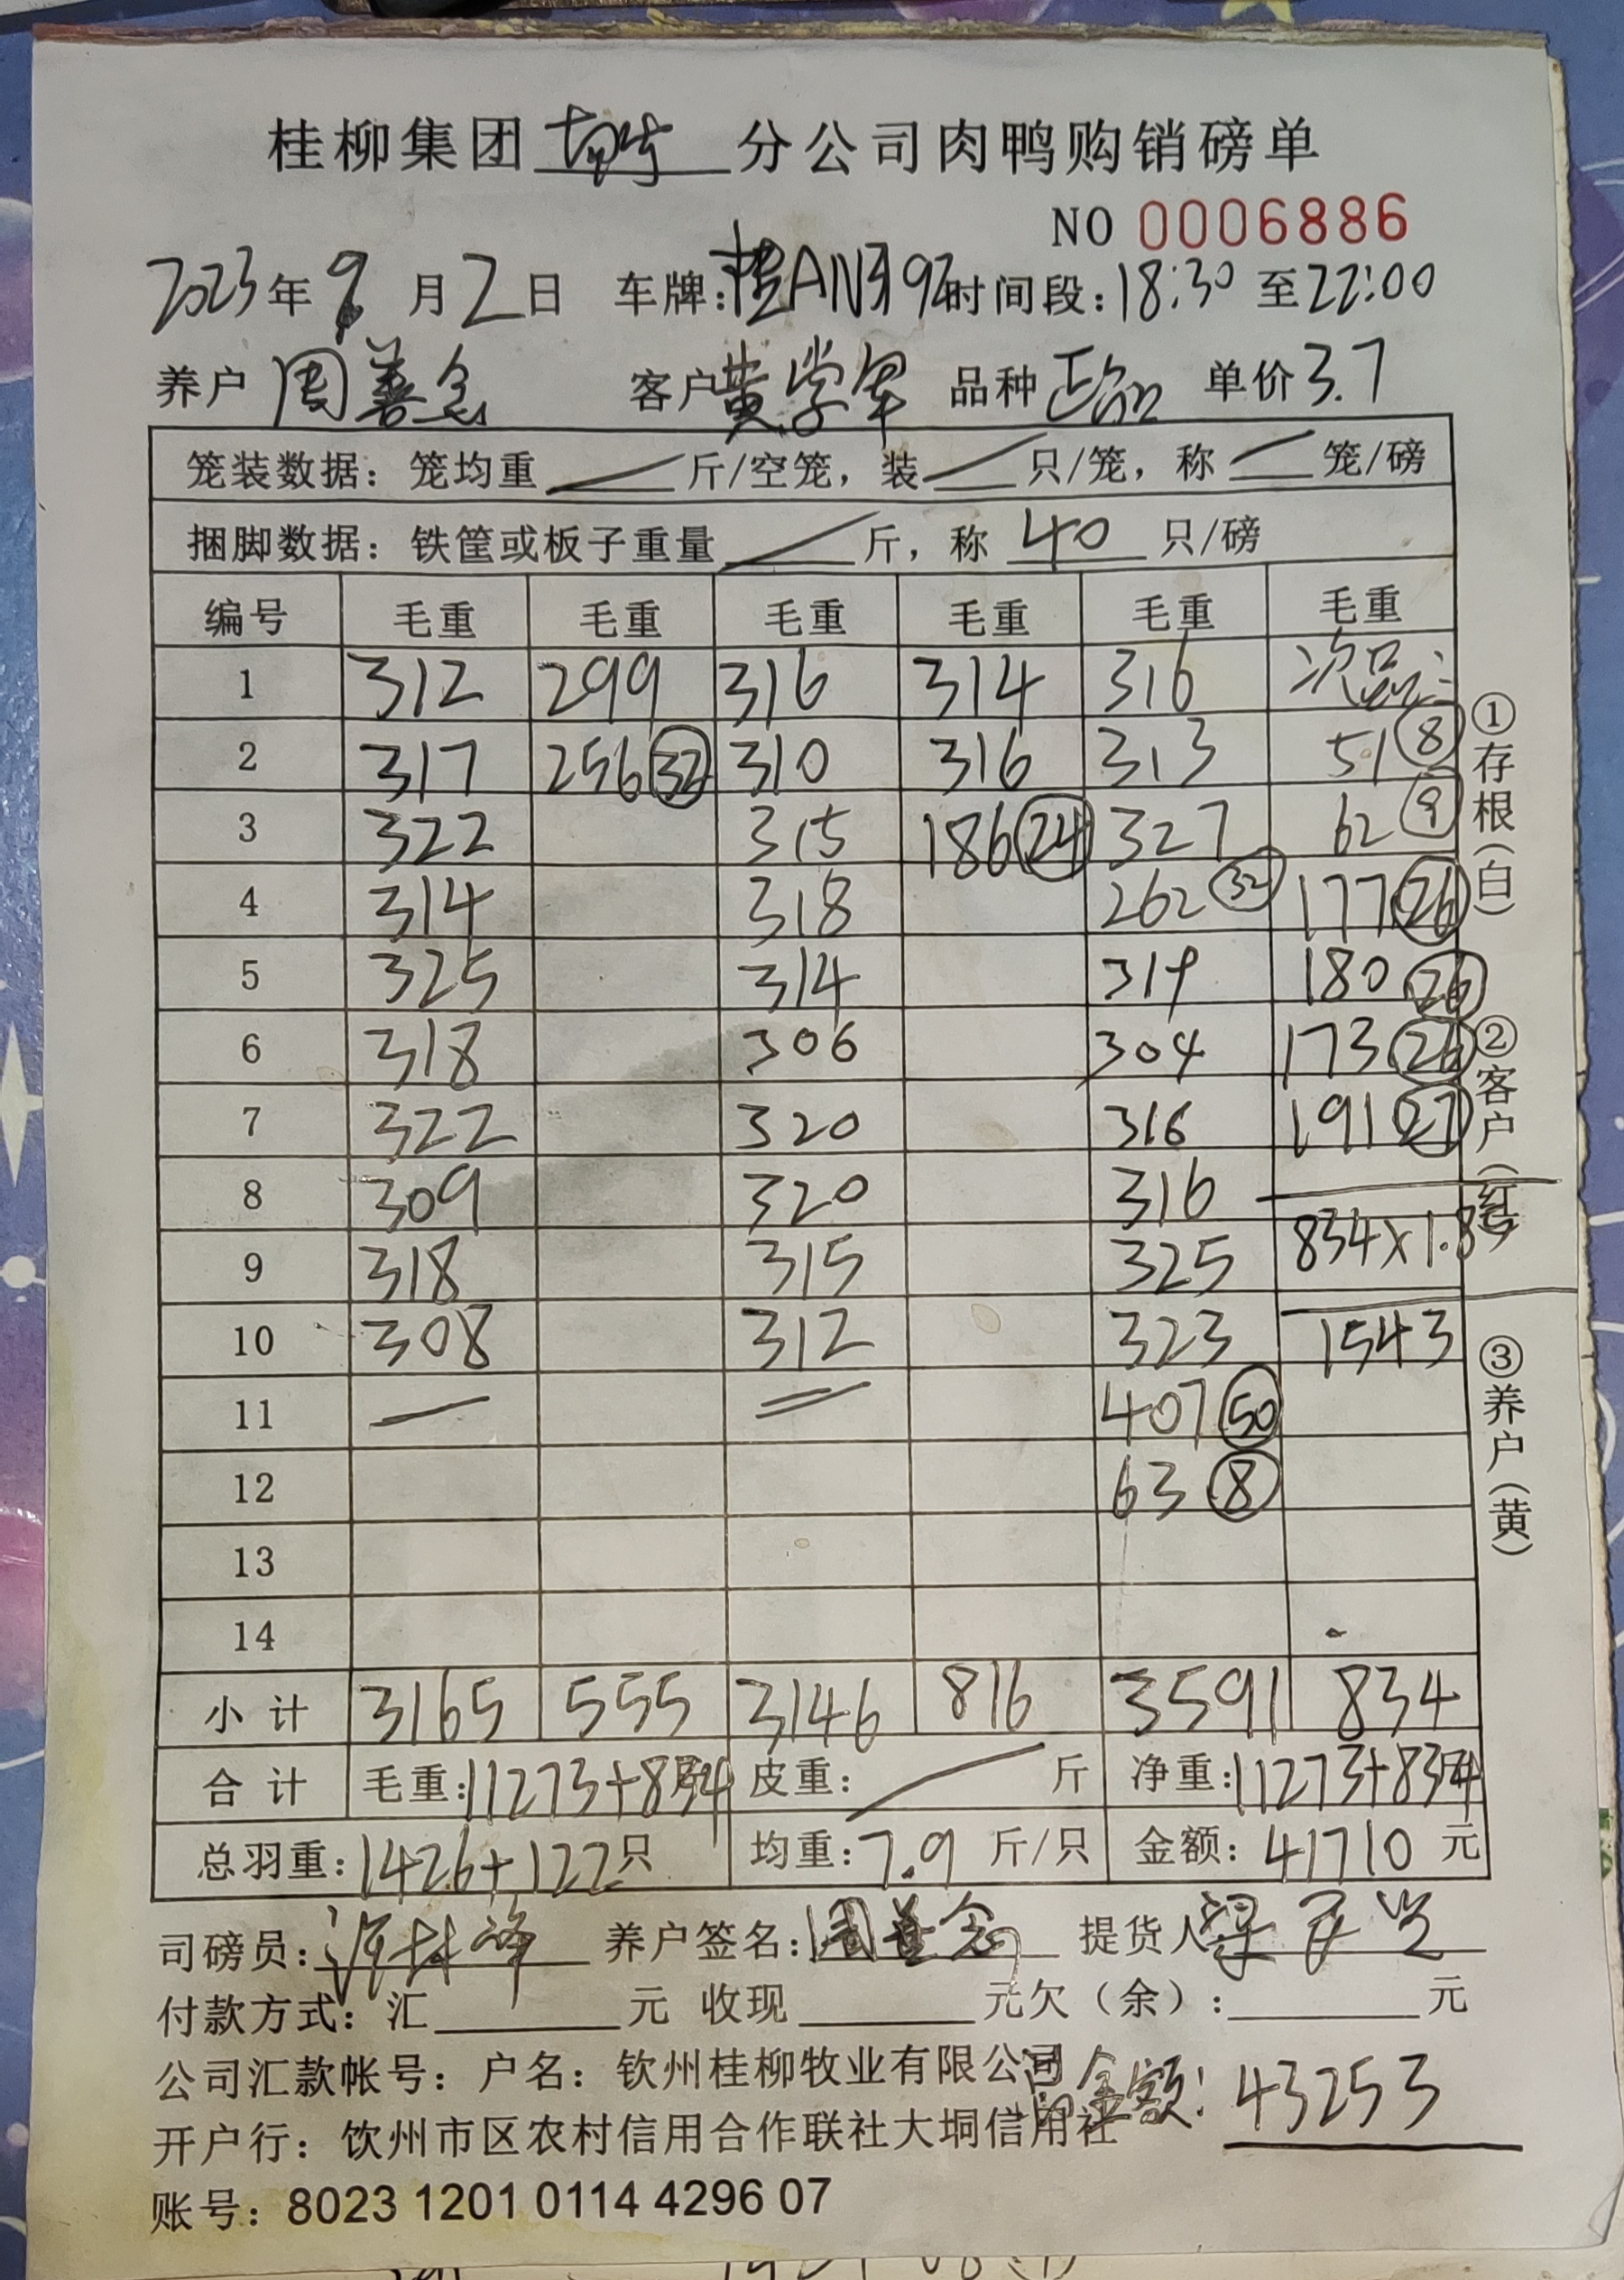 桂柳集团 分公司肉鸭购销磅单
NO 0006886
2023年9月2日 车牌:桂AN 92 时间段:18:30 至22:00
养户 周善 客户 黄学军 品种 正品 单价3.7
笼装数据: 笼均重 / 斤/空笼, 装 / 只/笼, 称 / 笼/磅
捆脚数据: 铁筐或板子重量 / 斤, 称 40 只/磅
编号 毛重 毛重 毛重 毛重 毛重 毛重
1 312 299 316 314 316 次品:
2 317 256 (32) 310 316 313 51 (8)
3 322 315 186 (24) 327 62 (9)
4 314 318 262 (32) 177 (26)
5 325 314 319 180 (26)
6 318 306 304 173 (26)
7 322 320 316 191 (27)
8 309 320 316
9 318 315 325 834×1.85
10 308 312 323 1543
11 — = 407 (50)
12 63 (8)
13
14
小计 3165 555 3146 816 3591 834
合计 毛重:11273+834 皮重: / 斤 净重:11273+834
总羽重:1426+122只 均重:7.9 斤/只 金额:41710 元
司磅员: 养户签名:周善 提货人
付款方式: 汇 元 收现 元 欠(余): 元
公司汇款帐号: 户名: 钦州桂柳牧业有限公司
金额: 43253
开户行: 饮州市区农村信用合作联社大垌信用社
账号: 8023 1201 0114 4296 07
①存根(白)
②客户(红)
③养户(黄)